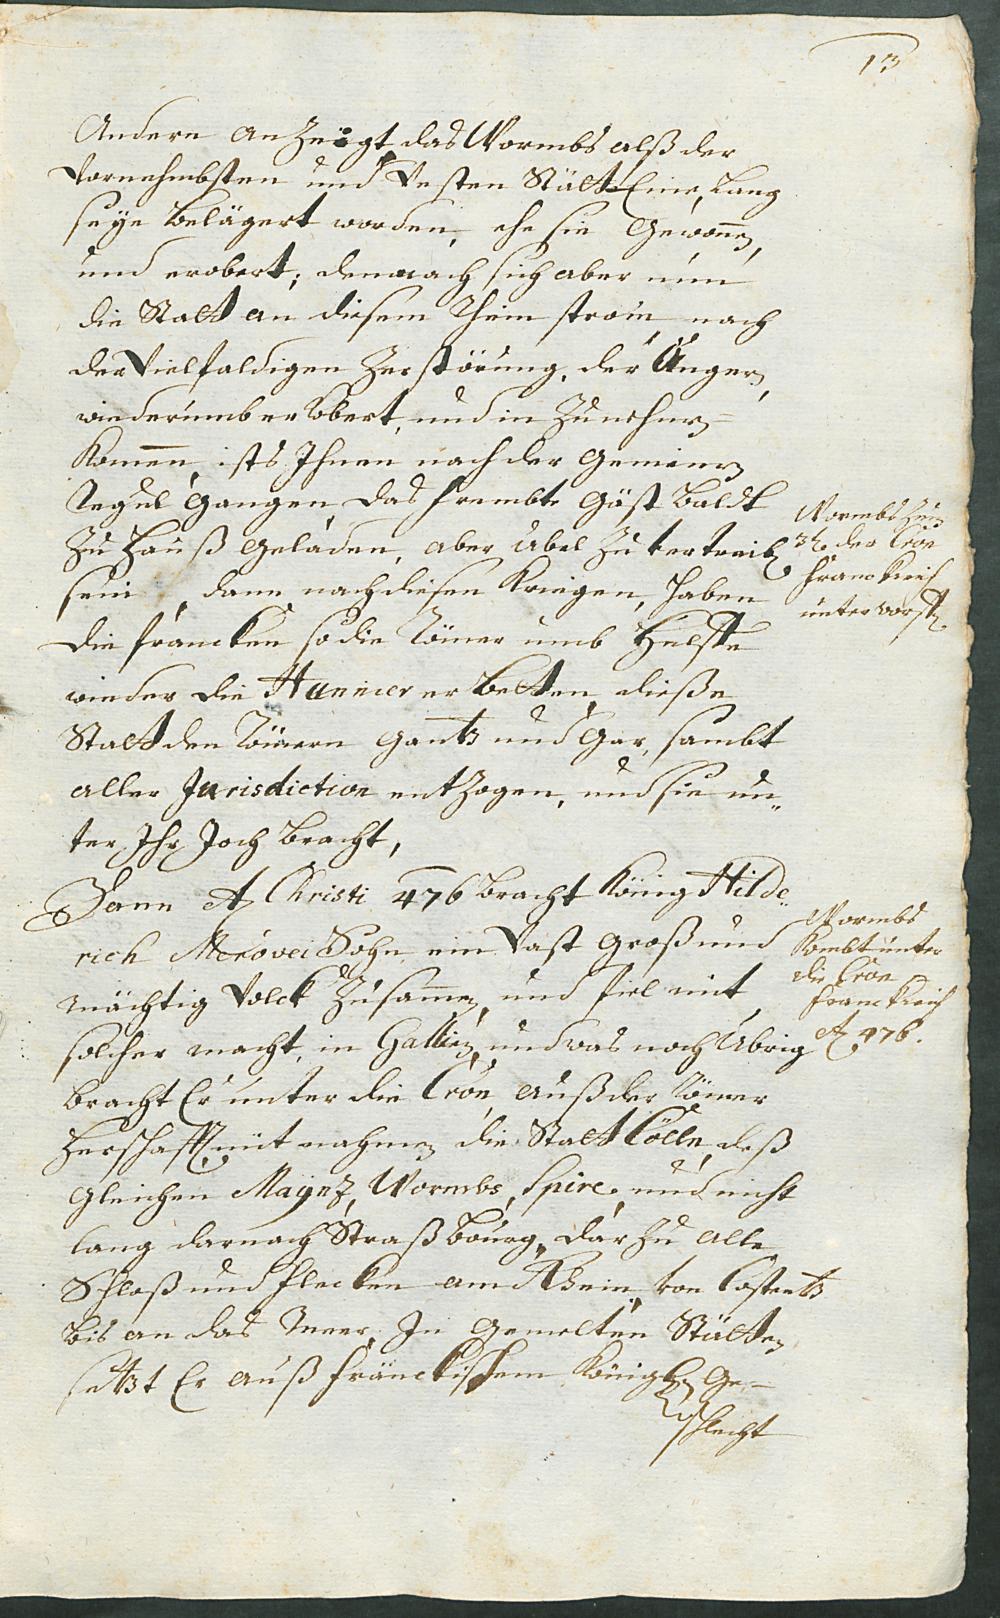 13
Andern anZeigt, das Wormbs alß der
Vornehmbsten und Vesten Stätt Eine, Lang
seye Belägert worden, ehe sie Gewonnen,
und erobert; demnach sich aber nun
die Statt an diesem Rhein strom, nach
der Vielfaldigen Zerstörung, der Ungern,
wiederumb erkobert, und in Zunehmen
kommen, ists Ihnen nach der Gemeinen
Regul Gangen, das frembte Gäst Baldt
Zu Hauß geladen, aber übel Zu vertreiben
sein, dann nach diesen Kriegen, haben
die francken so die Römer umb Hülffe
wieder die Hunnier erbetten, dieße
Statt den Römern Gantz und Gar, sambt
aller Jurisdiction entZogen, und sie un-
ter Ihr Joch Bracht,
Wormbs
der Cron
Franckreich
unterworffen.
Dann A Christi 476 Bracht König Hilde-
rich Merovei Sohn, ein Vast Groß und
mächtig Volck Zusammen, und fiel mit
solcher macht, in Gallien, und was noch übrig
Bracht Er unter die Cron, auß der Römer
Herschafft, mit nahmen die Statt Cölln, deß
Gleichen Maynz, Wormbs, Spire, und nicht
lang darnach Straßbourg, dar Zu alle
Schloß und flecken am Rhein, von Costentz
bis an das Meer, In Gemelten Stätten
setzt Er auß fränckischem König. Ge-
schlecht
Wormbs
kombt unter
die Cron
Franckreich
A 476.